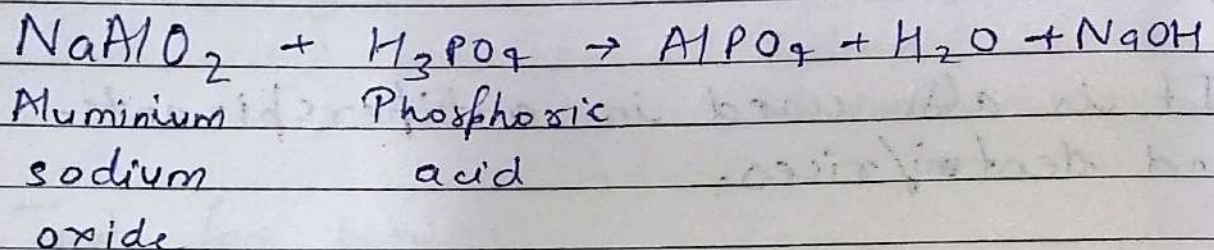 NaAlO₂ + H₃PO₄ → AlPO₄ + H₂O + NaOH
Aluminium Phosphoric
sodium acid
oxide